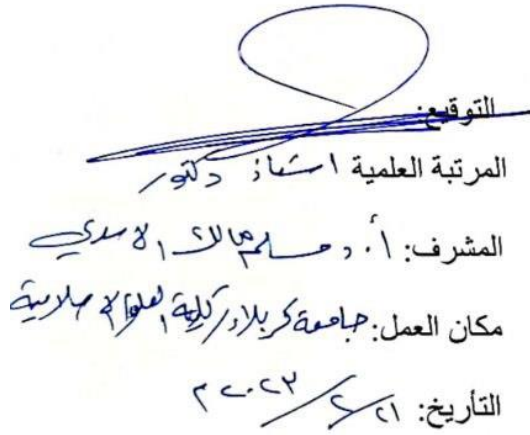 التوقيع:
المرتبة العلمية استاذ دكتور
المشرف: أ. د مسلم مالك الاسدي
مكان العمل: جامعة كربلاء/ كلية العلوم الاسلامية
التأريخ: ٢١/ ٢/ ٢٠٢٣ م